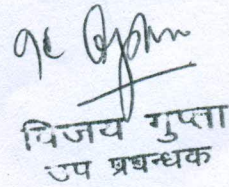 विजय गुप्ता
उप प्रबन्धक